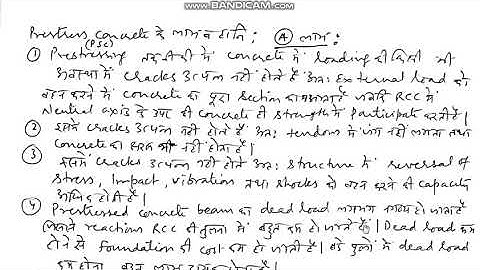 www.BANDICAM.com
Prestress concrete के लाभ व हानि ; (A) लाभ :
(PSC)
① Prestressing तकनीकी में concrete में loading की किसी भी
अवस्था में cracks उत्पन्न नहीं होते हैं अतः External load को
वहन करने में concrete का पूरा section काम आता है जबकि RCC में
Neutral axis के ऊपर की concrete ही strength में participate करती है।
② इसमें cracks उत्पन्न नहीं होते हैं अतः tendon में जंग नहीं लगता तथा
concrete का क्षरण भी नहीं होता है।
③ इसमें cracks उत्पन्न नहीं होते अतः structure में reversal of
stress, Impact, vibration तथा shocks को वहन करने की capacity
अधिक होती है।
④ Prestressed concrete beam का dead load लगभग नगण्य हो जाता है
जिससे reaction RCC की तुलना में बहुत कम हो जाते हैं। Dead load कम
होने से foundation की cost कम हो जाती है। बड़े पुलों में dead load
कम होना बहुत